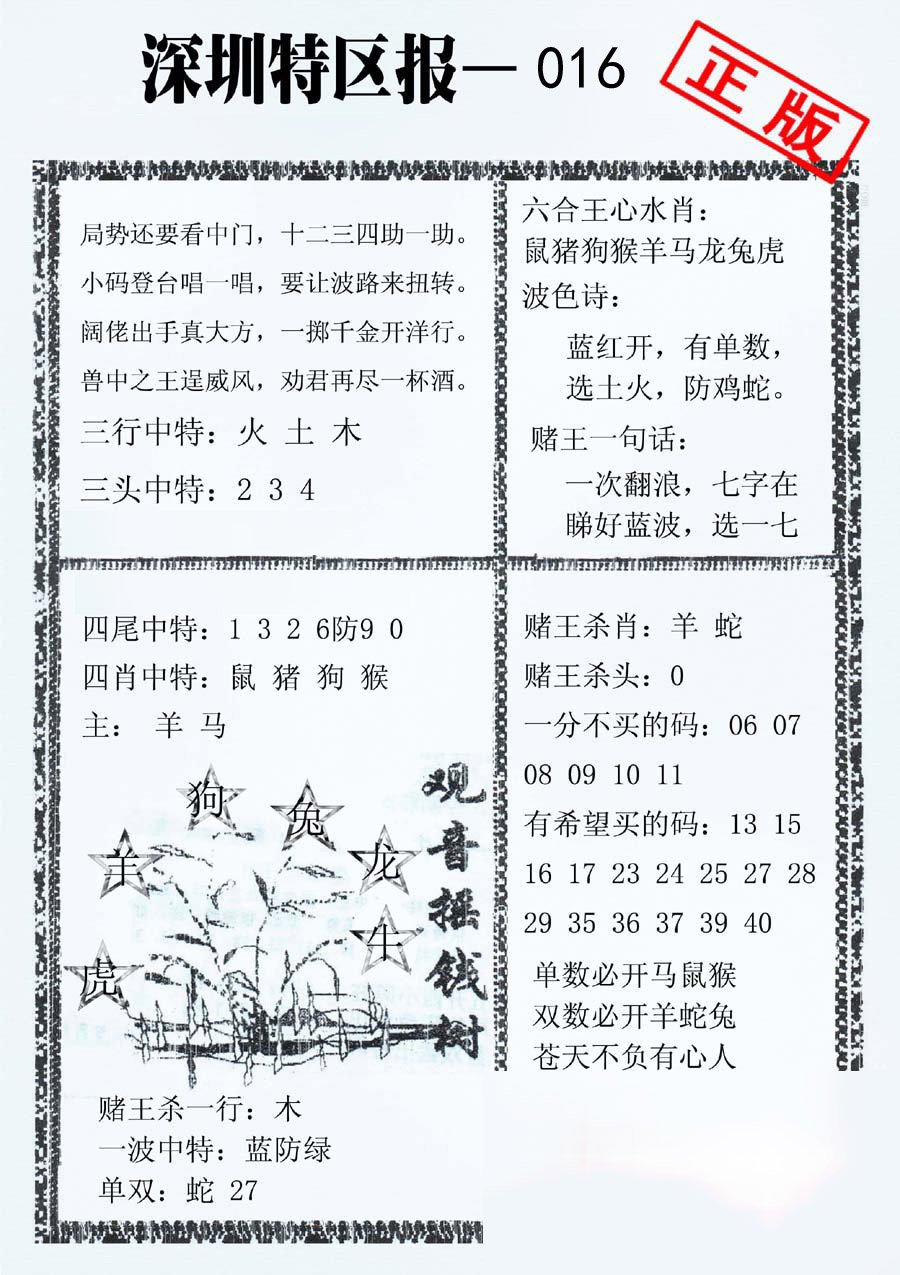 深圳特区报—016
正版
局势还要看中门，十二三四助一助。
小码登台唱一唱，要让波路来扭转。
阔佬出手真大方，一掷千金开洋行。
兽中之王逞威风，劝君再尽一杯酒。
三行中特：火 土 木
三头中特：2 3 4
六合王心水肖：
鼠猪狗猴羊马龙兔虎
波色诗：
蓝红开，有单数，
选土火，防鸡蛇。
赌王一句话：
一次翻浪，七字在
睇好蓝波，选一七
四尾中特：1 3 2 6防9 0
四肖中特：鼠 猪 狗 猴
主： 羊 马
狗
兔
羊
龙
牛
虎
观音摇钱树
赌王杀一行：木
一波中特：蓝防绿
单双：蛇 27
赌王杀肖：羊 蛇
赌王杀头：0
一分不买的码：06 07
08 09 10 11
有希望买的码：13 15
16 17 23 24 25 27 28
29 35 36 37 39 40
单数必开马鼠猴
双数必开羊蛇兔
苍天不负有心人